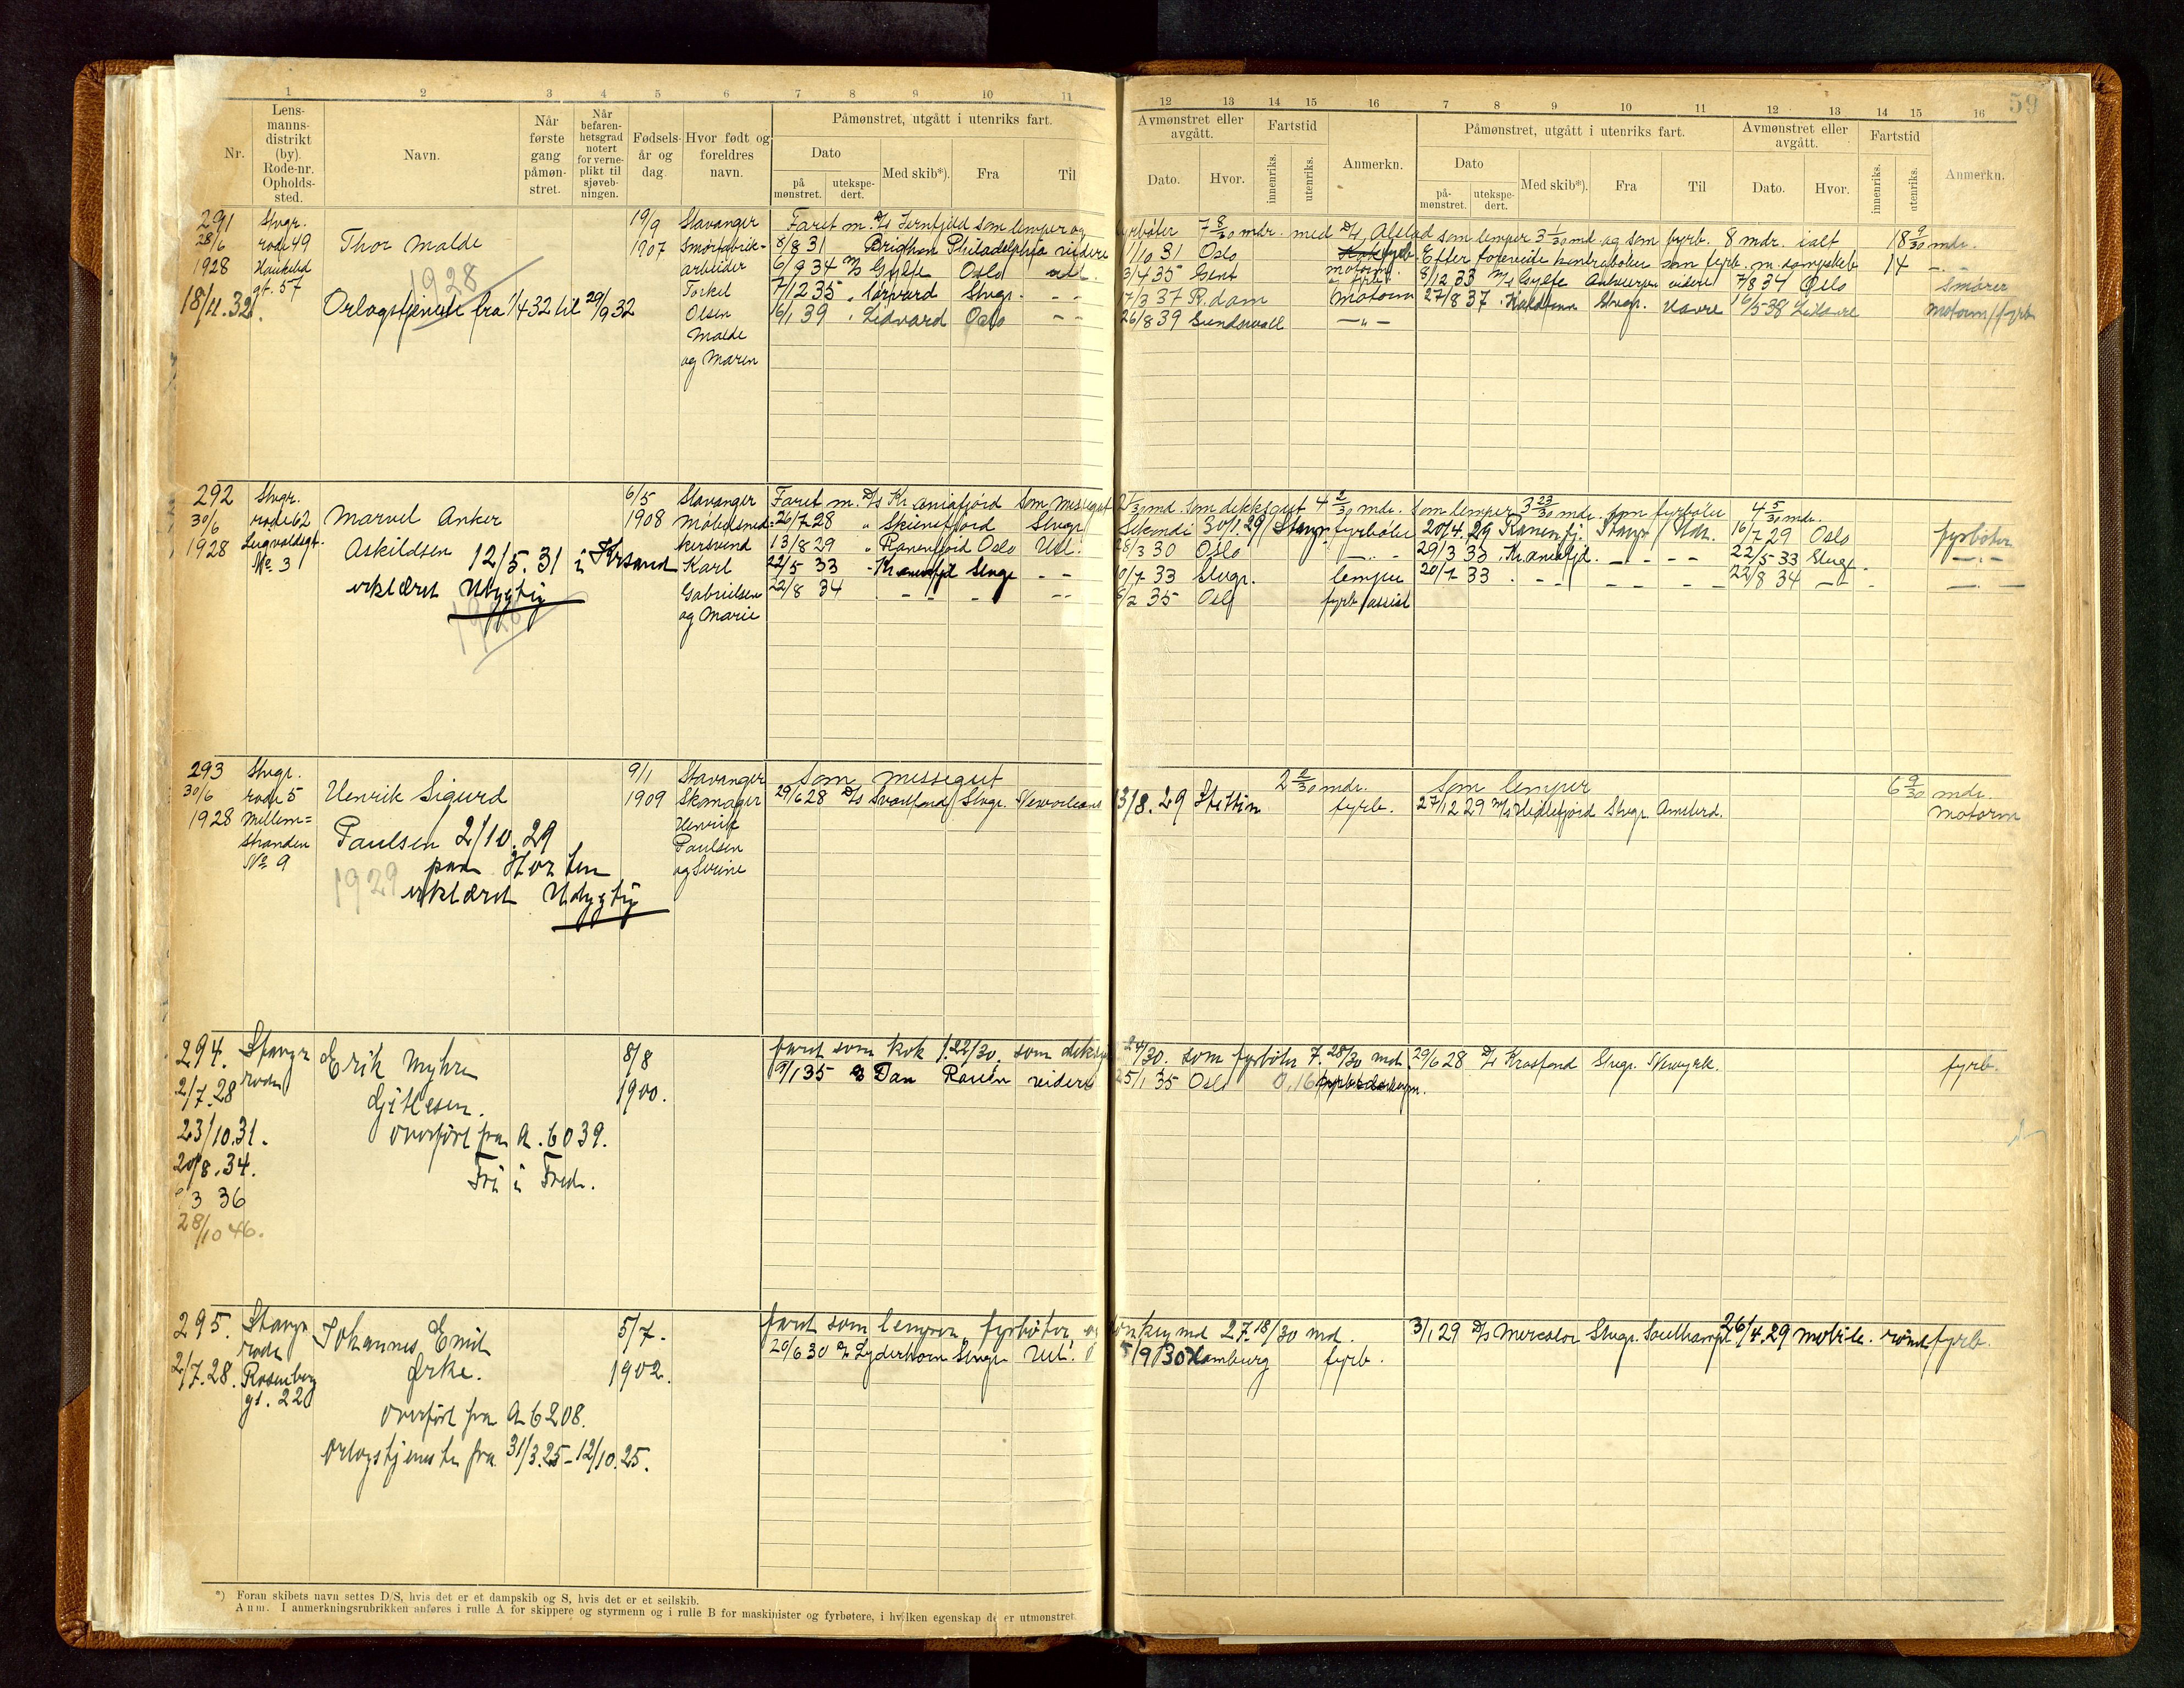 59
1 2 3 4 5 6 7 8 9 10 11
Nr.
Lens-
manns-
distrikt
(by).
Rode-nr.
Opholds-
sted.
Navn.
Når
første
gang
påmøn-
stret.
Når
befaren-
hetsgrad
notert
for verne-
plikt til
sjøveb-
ningen.
Fødsels-
år og
dag.
Hvor født og
foreldres
navn.
Påmønstret, utgått i utenriks fart.
Dato
på
mønstret.
utekspe-
dert.
Med skib*).
Fra
Til
12 13 14 15 16 7 8 9 10 11 12 13 14 15 16
Avmønstret eller
avgått.
Dato.
Hvor.
Fartstid
innenriks.
utenriks.
Anmerkn.
Påmønstret, utgått i utenriks fart.
Dato
på-
mønstret.
utekspe-
dert.
Med skib*).
Fra
Til
Avmønstret eller
avgått.
Dato.
Hvor.
Fartstid
innenriks.
utenriks.
Anmerkn.
291
28/6
1928
18/11.32.
Stvgr.
rode 49
Haukelid
gt. 57
Thor Malde
1928
Orlogstjeneste fra 1/4 32 til 29/9 32
19/9
1907
Stavanger
arbeider
Torkel
Olsen
Malde
og Maren
Faret m. D/S Jernfjeld som lemper og
8/8 31 Brighton Philadelphia videre
6/9 34 M/S Gylfe Oslo utl.
7/12 35 Stvgr. - -
16/1 39 Lidvard Oslo - -
fyrbøter 7 8/30 mdr. med D/S Alstad som lemper 3 1/30 md og som fyrb. 8 mdr. ialt 18 9/30 mdr.
1/10 31 Oslo
3/4 35 Gent
17/3 37 R.dam Motorm
26/8 39 Sundsvall —"—
8/12 33 M/S Gylfe Antwerpen videre 7/8 34 Oslo Smører
27/8 37 Stvgr. Havre 16/5-38 Motorm/fyrb
292
30/6
1928
Stvgr.
rode 62
No. 3
Marvel Anker
Askildsen 12/5.31 i Krsand
erklæret Udygtig
6/5
1908
Stavanger
Møbelsned-
kersvend
Karl
Gabrielsen
og Marie
Faret m. D/S Kr.aniafjord som messegut
26/7 28 " Skiensfjord Stvgr.
13/8 29 " Ranenfjord Oslo Utl.
22/5 33 Stvgr - -
22/8 34 - - - - -
md. som dekksgut 4 2/30 mdr. som lemper 3 23/30 mdr. som fyrbøter 4 5/30 mdr.
30/1.29 / Stavgr fyrbøter 20/4.29 Ranenfj. Stavgr / Utl. 16/7 29 Oslo fyrbøter
28/3 30 Oslo — " — 29/3 33 Kr.aniafjd. - - - 22/5-33 Stvgr - " -
0/7 33 Stvgr. lemper 20/7 33 22/8 34
2 35 Oslo fyrb/assist
293
30/6
1928
Stvgr.
rode 5
Mellem=
stranden
No 9
Henrik Sigurd
Paulsen 2/10.29
paa Horten
1929 erklæret Udygtig
9/1
1909
Stavanger
Skomager
Henrik
Paulsen
og Serine
Som messegut 2 2/30 mdr. Som lemper 6 9/30 mdr.
29/6 28 D/S Svartfond Stvgr. Neworleans
13/8.29 Stettin fyrb. 27/12 29 M/S Heddefjord Stvgr. Amsterd. Motorm
294.
2/7.28
23/10.31.
20/8.34.
3 36
28/10 46.
Stavgr
rode
Erik Myhre
Gitlesen.
overført fra A. 6039.
Fri i Fred.
8/8
1900.
faret som kok 1.22/30. som dekksg
9/1 35 Dan Rouen videre
24/30. som fyrbøter 7.28/30 md.
25/1 35 Oslo 0,16
29/6 28 D/S Krosfond Stvgr. Newyrk. fyrb.
295.
2/7.28.
Stavgr
rode
Rosenberg
gt. 22
Johannes Emil
Ørke.
overført fra A 6208.
Orlogstjeneste fra 31/3.25-12/10.25.
5/7-
1902.
faret som lemper, fyrbøter og
20/6 30 D/S Lyderhorn Stvgr Utl.
donkeymd 27.18/30 md.
5/9 30 Hamburg fyrb.
3/1 29 D/S Mercator Stvgr. Southampt 26/4.29 fyrb.
*) Foran skibets navn settes D/S, hvis det er et dampskib og S, hvis det er et seilskib.
Anm. I anmerkningsrubrikken anføres i rulle A for skippere og styrmenn og i rulle B for maskinister og fyrbøtere, i hvilken egenskap de er utmønstret.